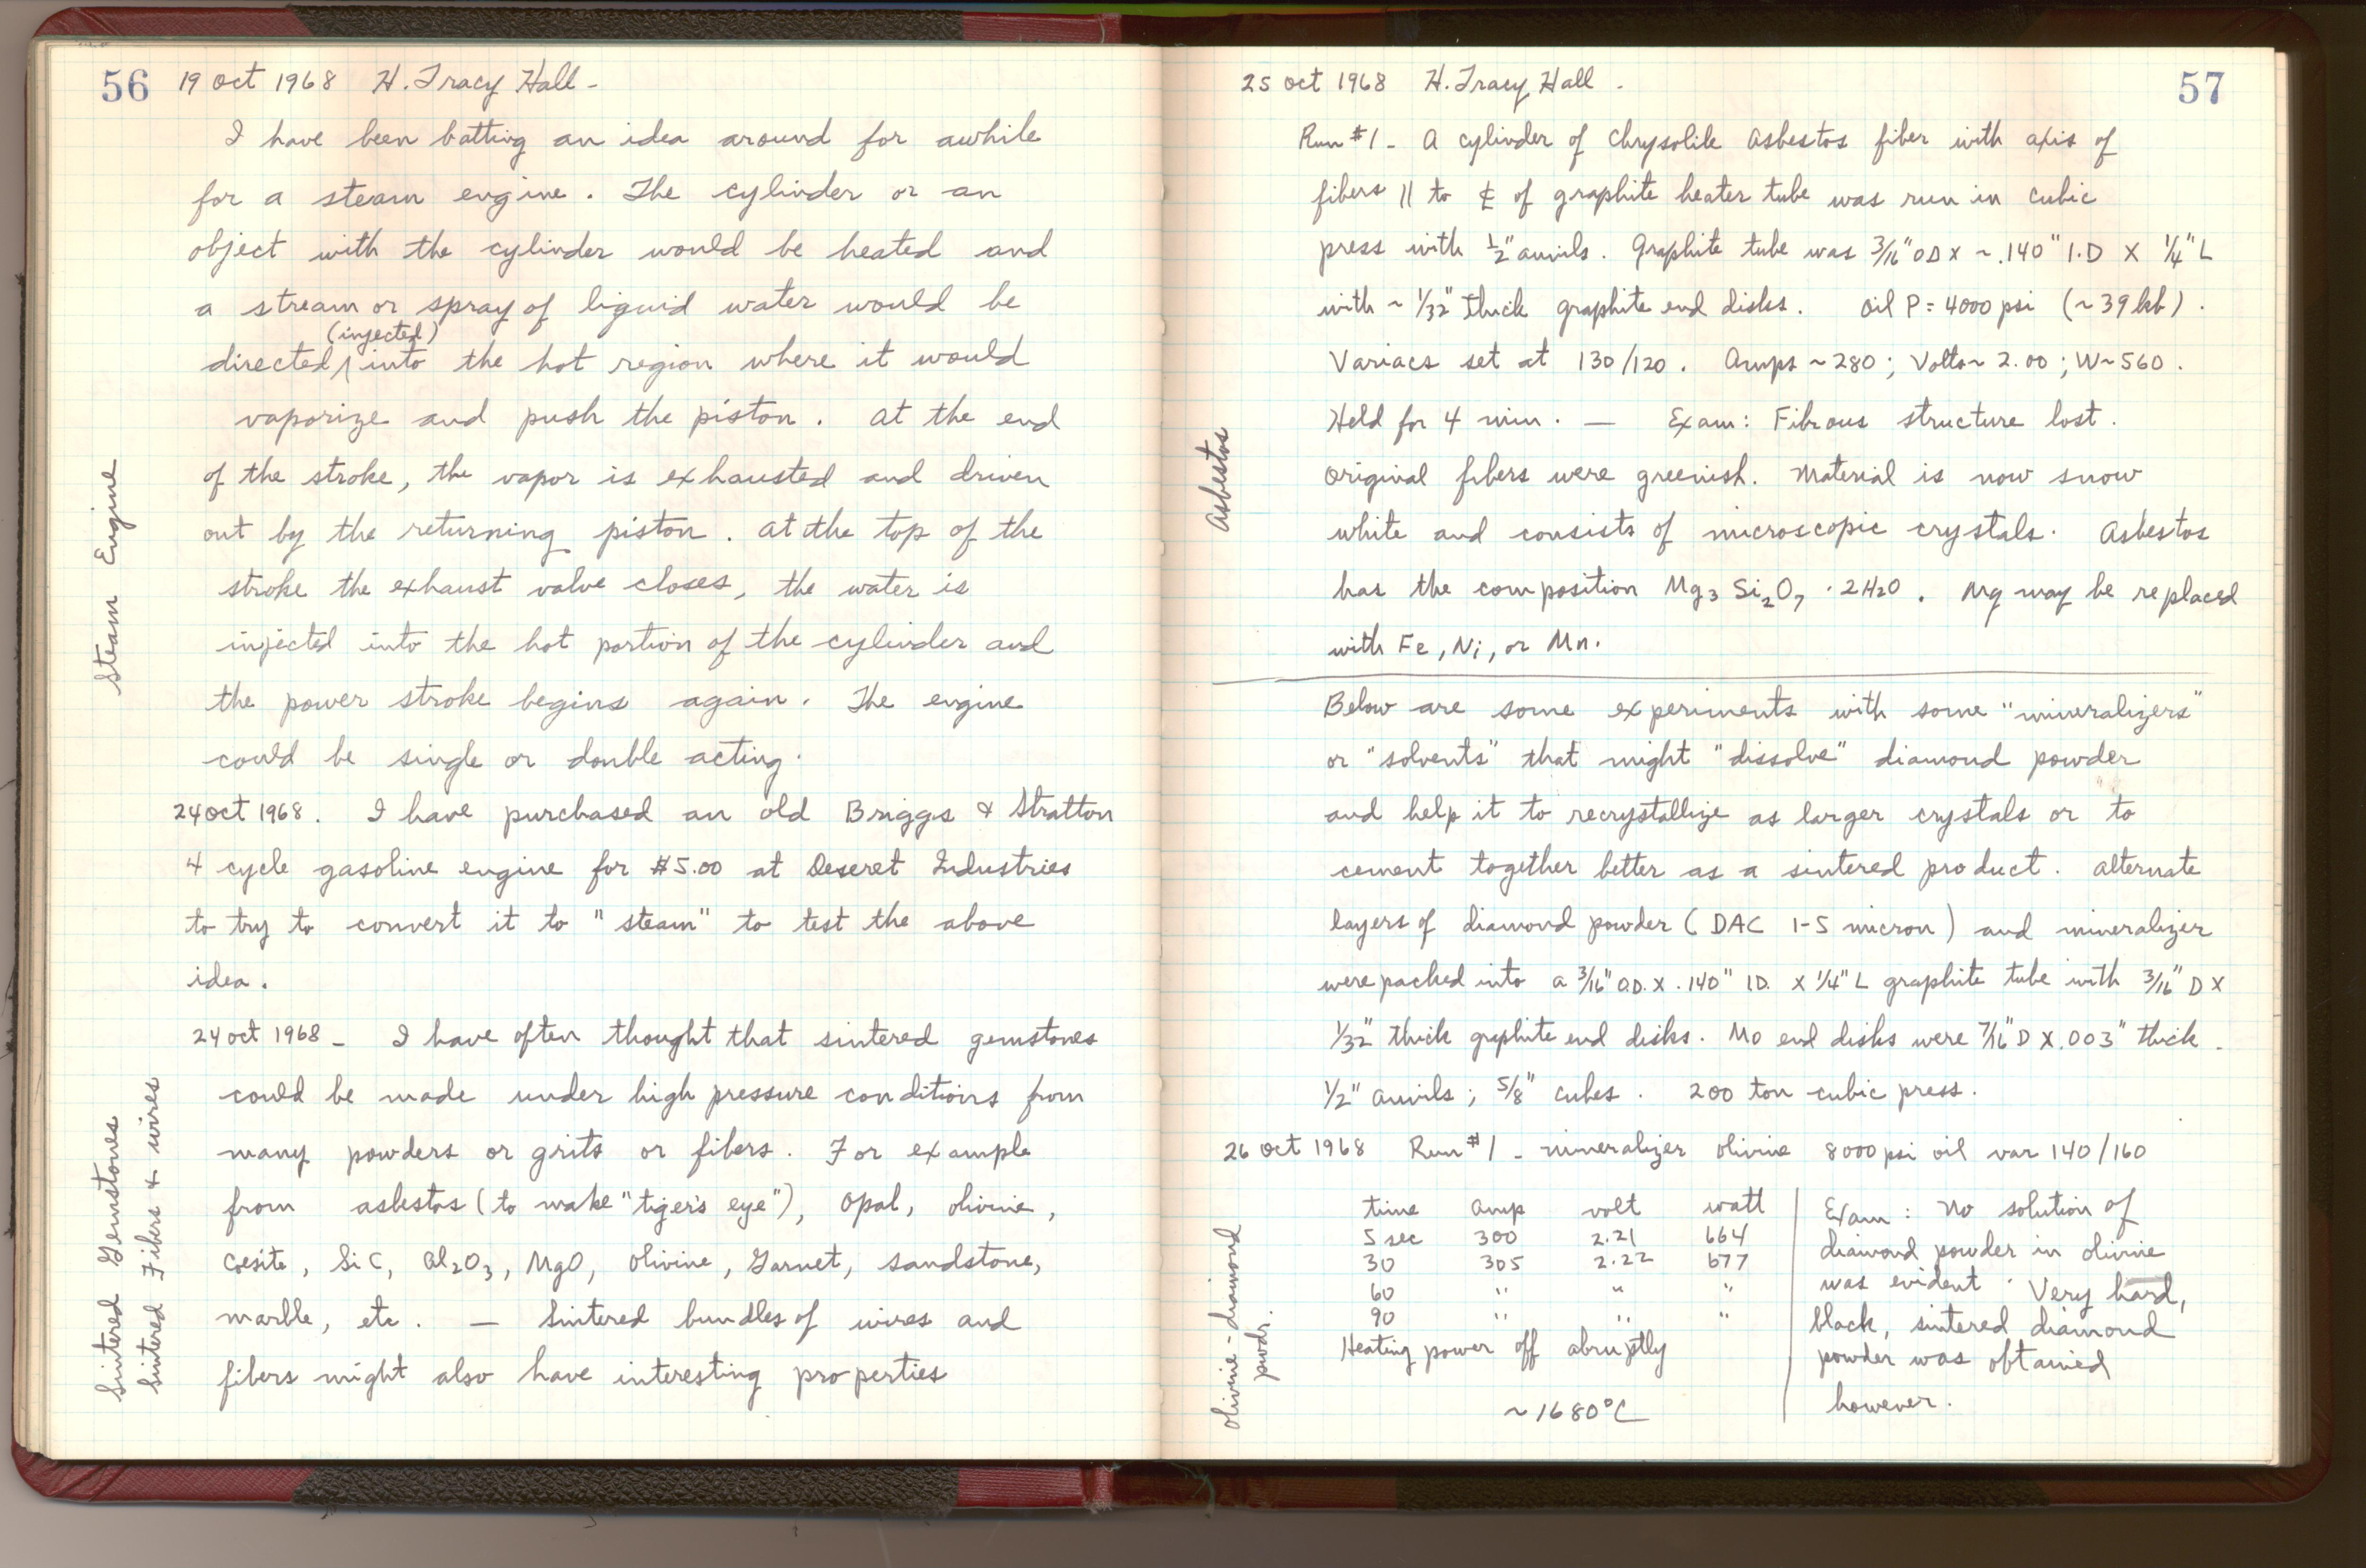 56 19 Oct 1968 H. Tracy Hall -
I have been batting an idea around for awhile
for a steam engine. The cylinder or an
object with the cylinder would be heated and
a stream or spray of liquid water would be
(injected)
directed ∧ into the hot region where it would
vaporize and push the piston. At the end
of the stroke, the vapor is exhausted and driven
out by the returning piston. At the top of the
stroke the exhaust valve closes, the water is
injected into the hot portion of the cylinder and
the power stroke begins again. The engine
could be single or double acting.
Steam Engine
24 Oct 1968. I have purchased an old Briggs & Stratton
4 cycle gasoline engine for $5.00 at Deseret Industries
to try to convert it to "steam" to test the above
idea.
24 Oct 1968 - I have often thought that sintered gemstones
could be made under high pressure conditions from
many powders or grits or fibers. For example
from asbestos (to make "tiger's eye"), opal, olivine,
Coesite, SiC, Al₂O₃, MgO, Olivine, Garnet, sandstone,
marble, etc. — Sintered bundles of wires and
fibers might also have interesting properties
Sintered Gemstones
Sintered Fibers & wires
25 Oct 1968 H. Tracy Hall - 57
Run #1 - A cylinder of Chrysolite Asbestos fiber with axis of
fibers || to ℄ of graphite heater tube was run in cubic
press with 1/2" anvils. Graphite tube was 3/16" OD x ~.140" I.D x 1/4" L
with ~ 1/32" thick graphite end disks. Oil P = 4000 psi (~39 kb).
Variacs set at 130/120. Amps ~280; Volts ~ 2.00; W~560.
Held for 4 min. — Exam: Fibrous structure lost.
Original fibers were greenish. Material is now snow
white and consists of microscopic crystals. Asbestos
has the composition Mg₃Si₂O₇ · 2H₂O. Mg may be replaced
with Fe, Ni, or Mn.
Asbestos
Below are some experiments with some "mineralizers"
or "solvents" that might "dissolve" diamond powder
and help it to recrystallize as larger crystals or to
cement together better as a sintered product. Alternate
layers of diamond powder (DAC 1-5 micron) and mineralizer
were packed into a 3/16" O.D. x .140" ID. x 1/4" L graphite tube with 3/16" D x
1/32" thick graphite end disks. Mo end disks were 7/16" D x .003" thick.
1/2" anvils; 5/8" cubes. 200 ton cubic press.
26 Oct 1968 Run #1 - mineralizer olivine 8000 psi oil var 140/160
time amp volt watt
5 sec 300 2.21 664
30 305 2.22 677
60 " " "
90 " " "
Heating power off abruptly
~1680°C
Exam: No solution of
diamond powder in olivine
was evident. Very hard,
black, sintered diamond
powder was obtained
however.
Olivine - diamond
pwdr.